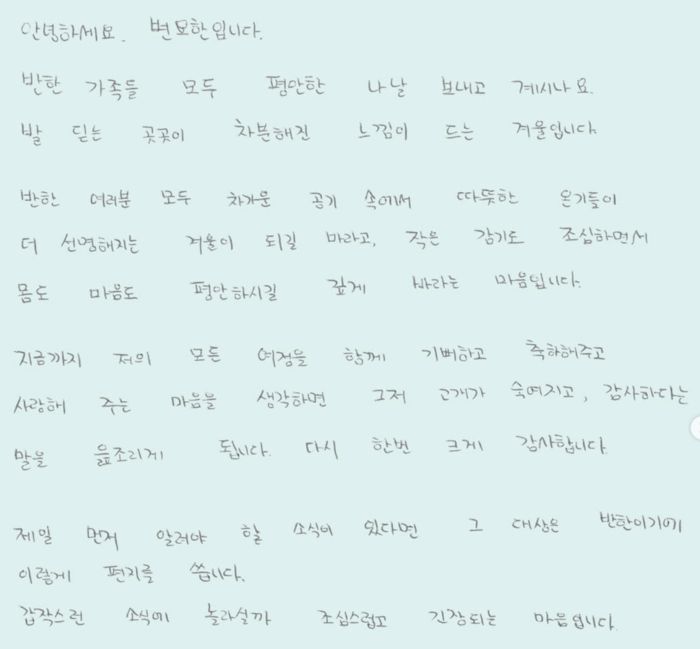 안녕하세요. 변요한입니다.
반한 가족들 모두 평안한 나날 보내고 계시나요.
발 딛는 곳곳이 차분해진 느낌이 드는 겨울입니다
반한 여러분 모두 차가운 공기 속에서 따뜻한 온기들이
더 선명해지는 겨울이 되길 바라고, 작은 감기도 조심하면서
몸도 마음도 평안하시길 깊게 바라는 마음입니다.
지금까지 저의 모든 여정을 함께 기뻐하고 축하해주고
사랑해 주는 마음을 생각하면 그저 고개가 숙여지고, 감사하다는
말을 읊조리게 됩니다. 다시 한번 크게 감사합니다.
제일 먼저 알려야 할 소식이 있다면 그 대상은 반한이기에
이렇게 편지를 씁니다.
갑작스런 소식에 놀라실까 조심스럽고 긴장되는 마음입니다.